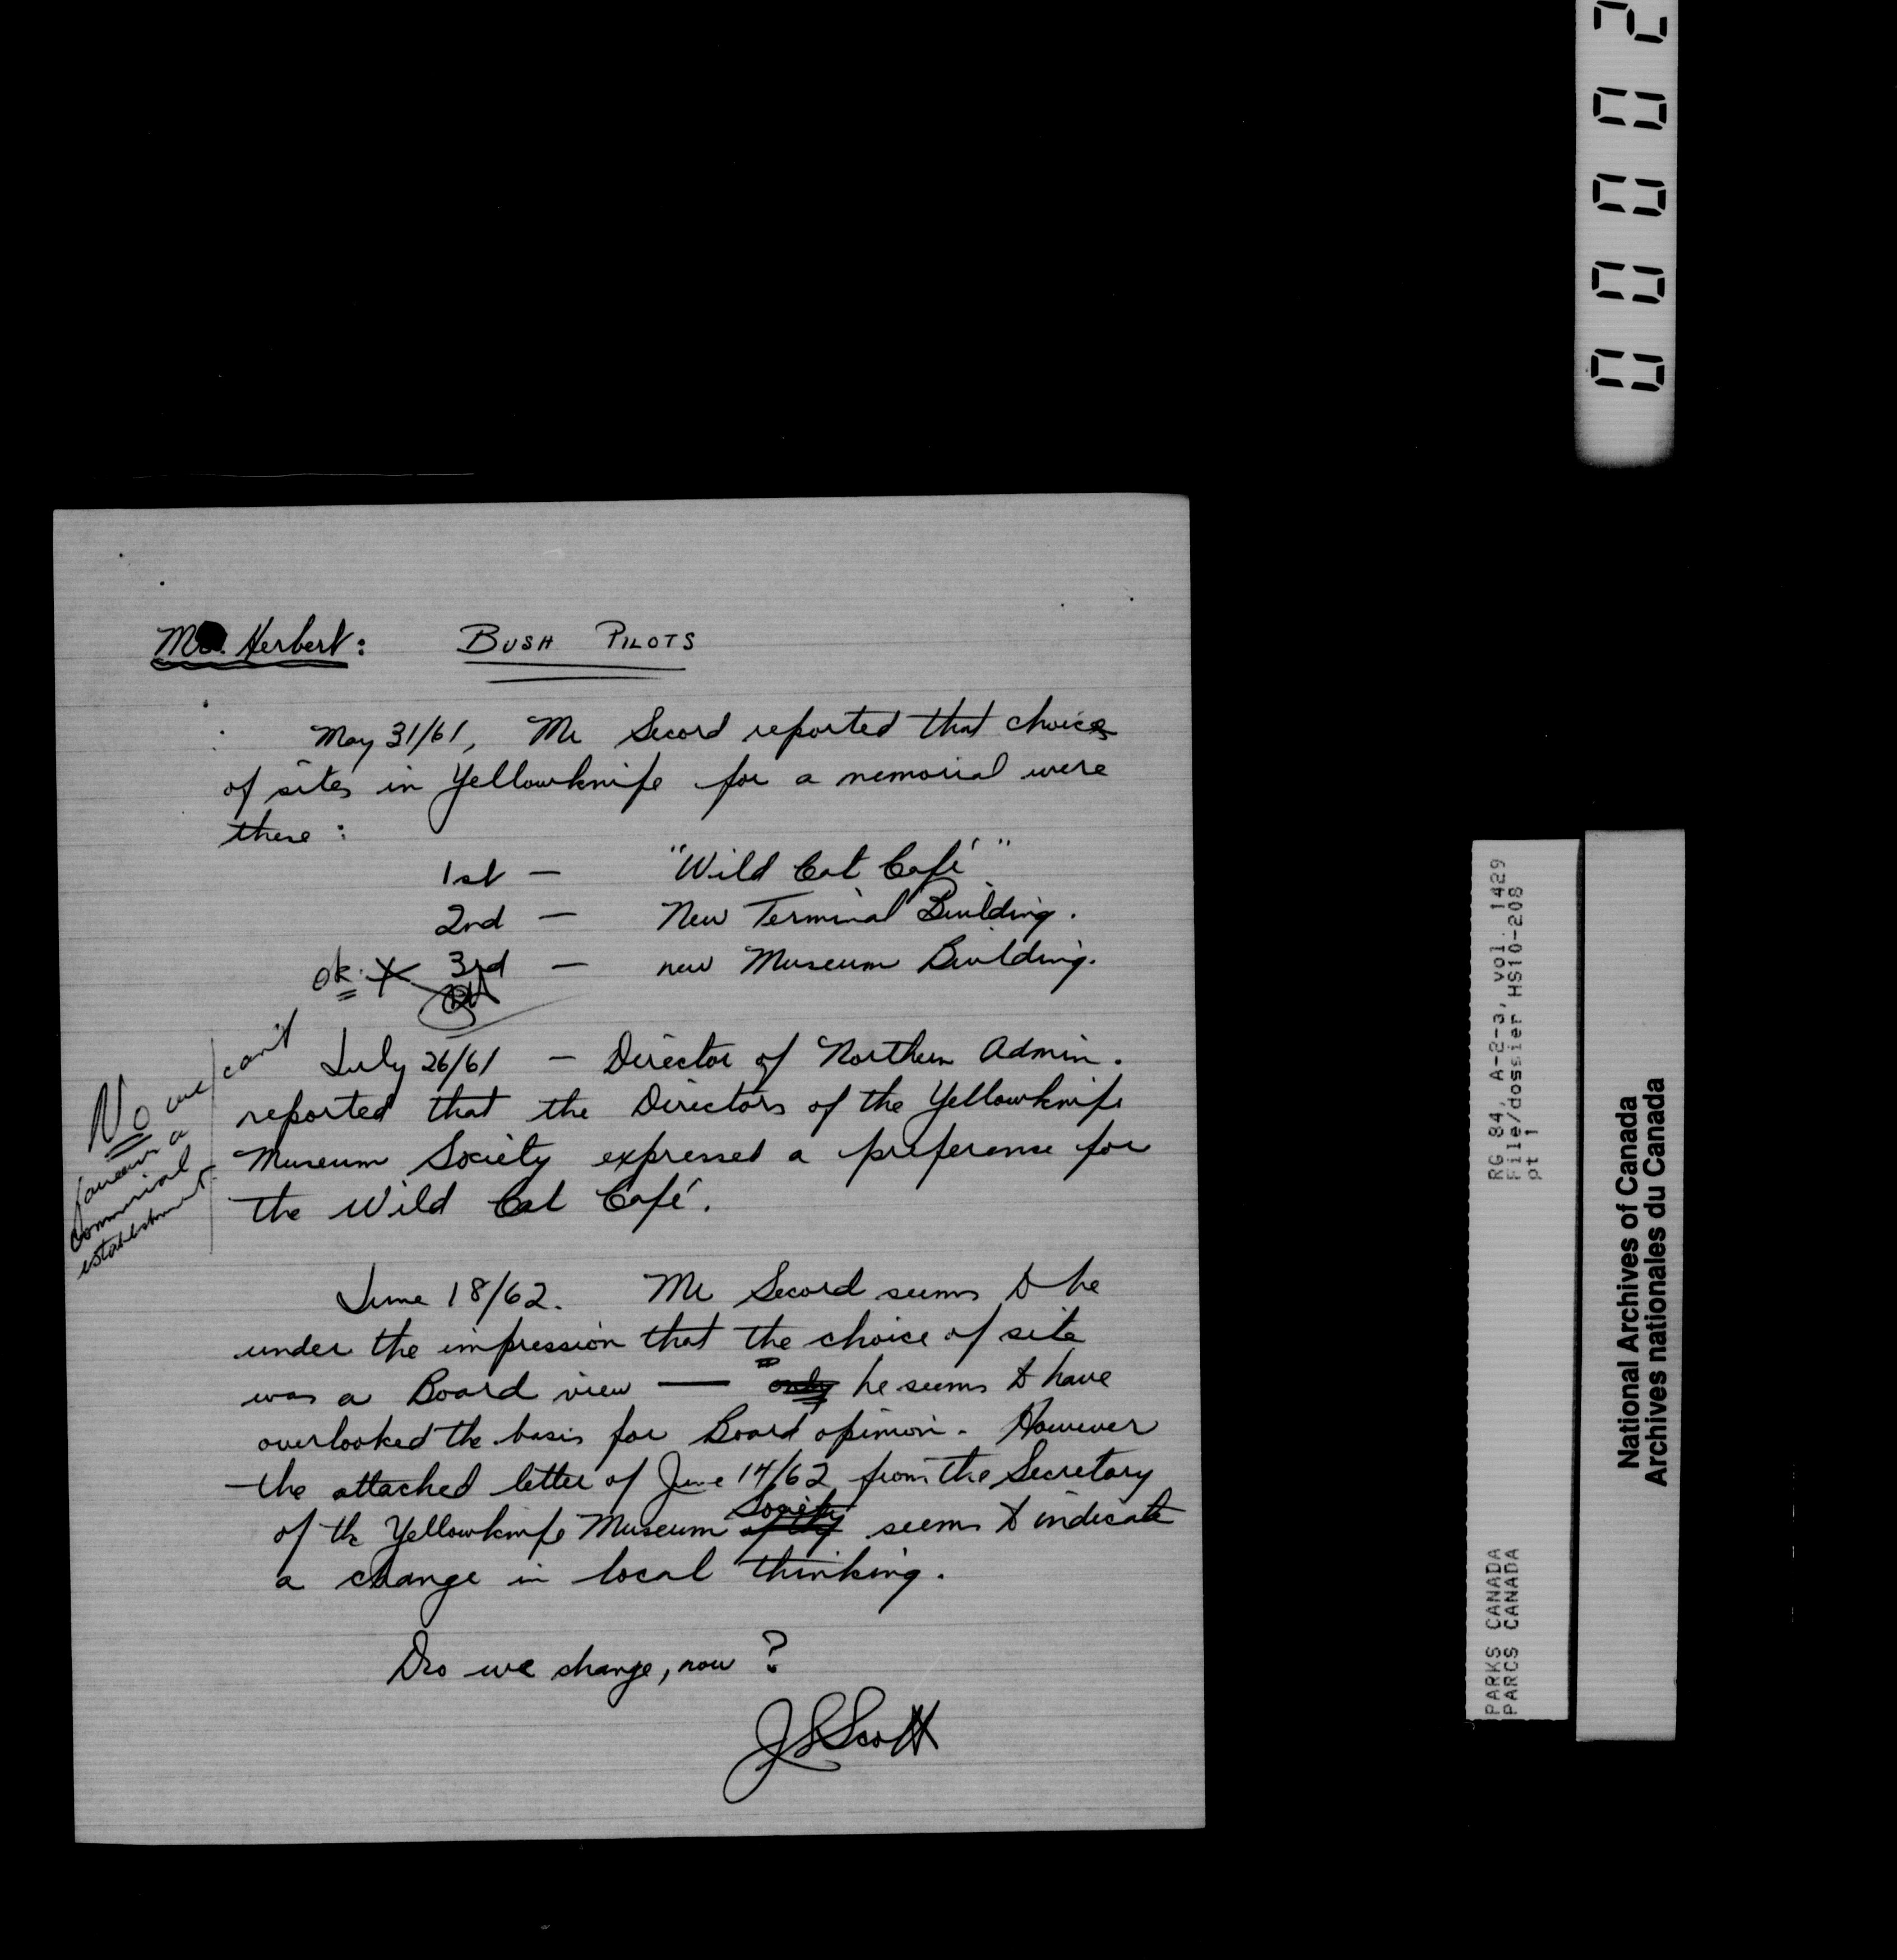 Mr. Herbert: BUSH PILOTS
May 31/61, Mr Secord reported that choices
of sites in Yellowknife for a memorial were
these :
1st — "Wild Cat Café"
2nd — New Terminal Building.
ok. X 3rd — new Museum Building.
July 26/61 — Director of Northern Admin.
reported that the Directors of the Yellowknife
Museum Society expressed a preference for
the Wild Cat Café.
No we can't
favour a
commercial
establishment.
June 18/62. Mr Secord seems to be
under the impression that the choice of site
was a Board view — only he seems to have
overlooked the basis for Board opinion. However
the attached letter of June 14/62 from the Secretary
of the Yellowknife Museum Society seems to indicate
a change in local thinking.
Do we change, now ?
JSScott
00002
RG 84, A-2-3, vol. 1429
File/dossier HS10-208
pt 1
PARKS CANADA
PARCS CANADA
National Archives of Canada
Archives nationales du Canada